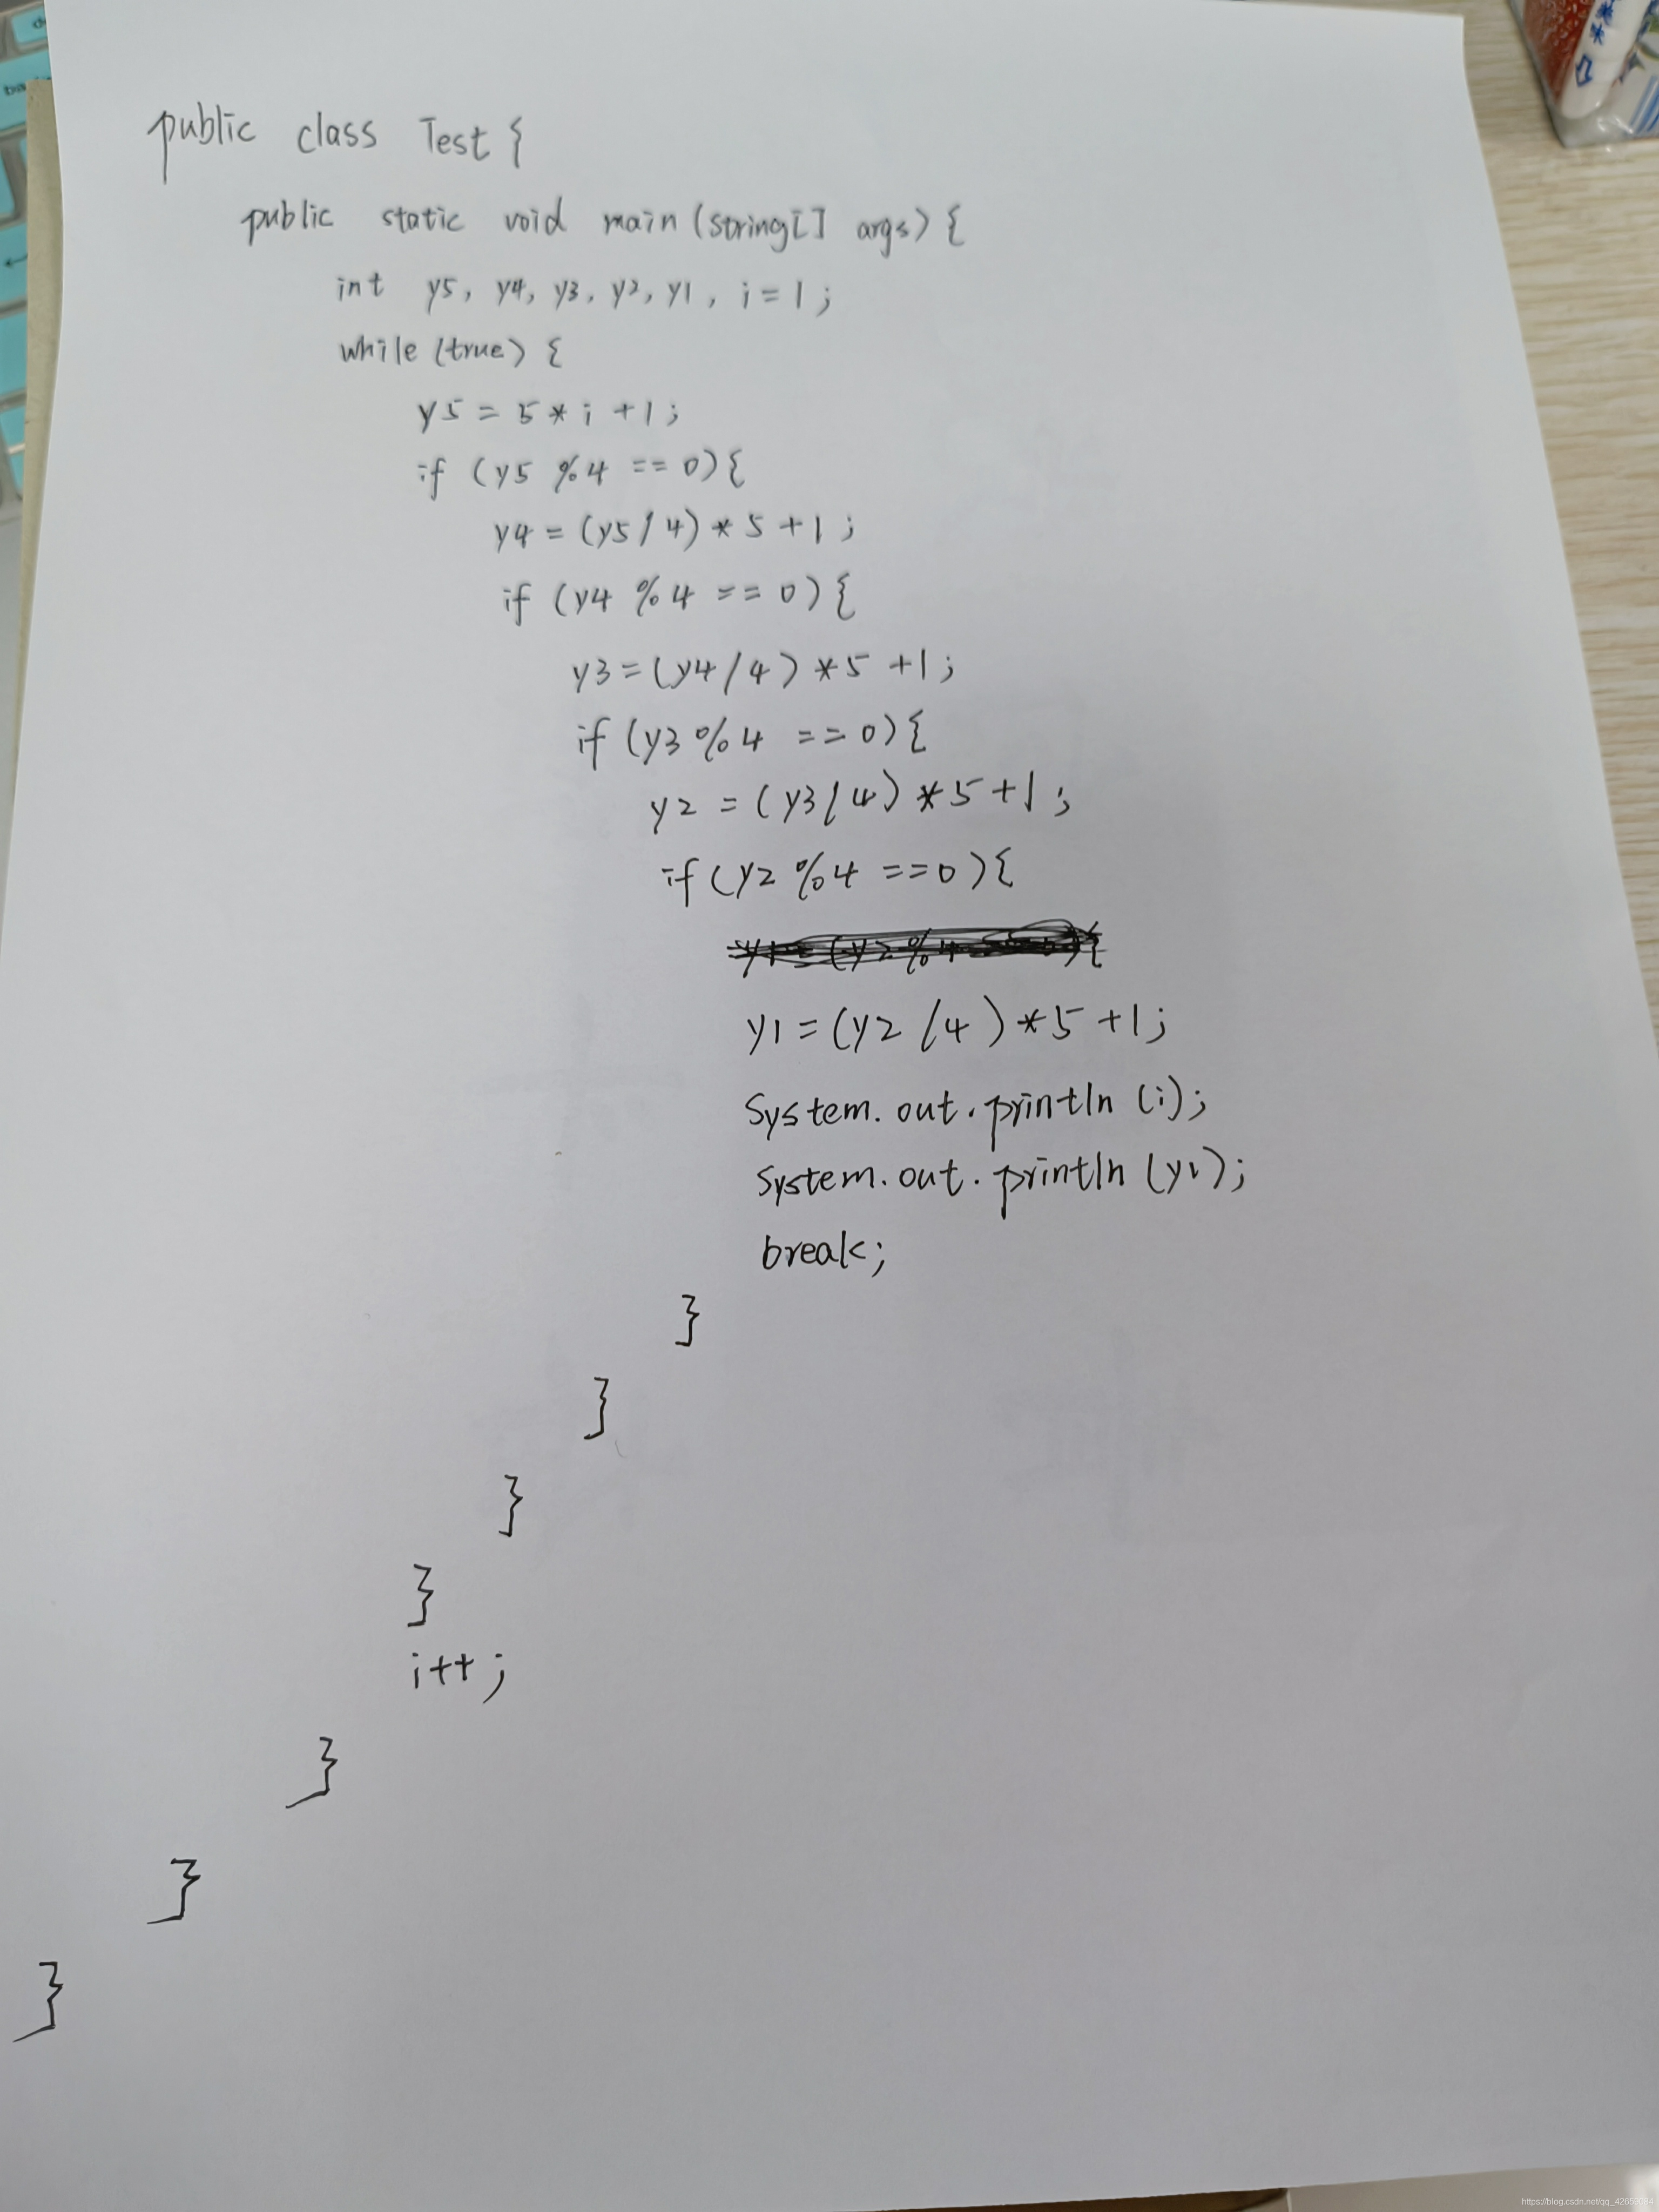 public class Test {
public static void main (String[] args) {
int y5, y4, y3, y2, y1, i = 1;
while (true) {
y5 = 5 * i + 1;
if (y5 % 4 == 0) {
y4 = (y5 / 4) * 5 + 1;
if (y4 % 4 == 0) {
y3 = (y4 / 4) * 5 + 1;
if (y3 % 4 == 0) {
y2 = (y3 / 4) * 5 + 1;
if (y2 % 4 == 0) {
y1 = (y2 / 4) * 5 + 1;
System.out.println (i);
System.out.println (y1);
break;
}
}
}
}
i++;
}
}
}